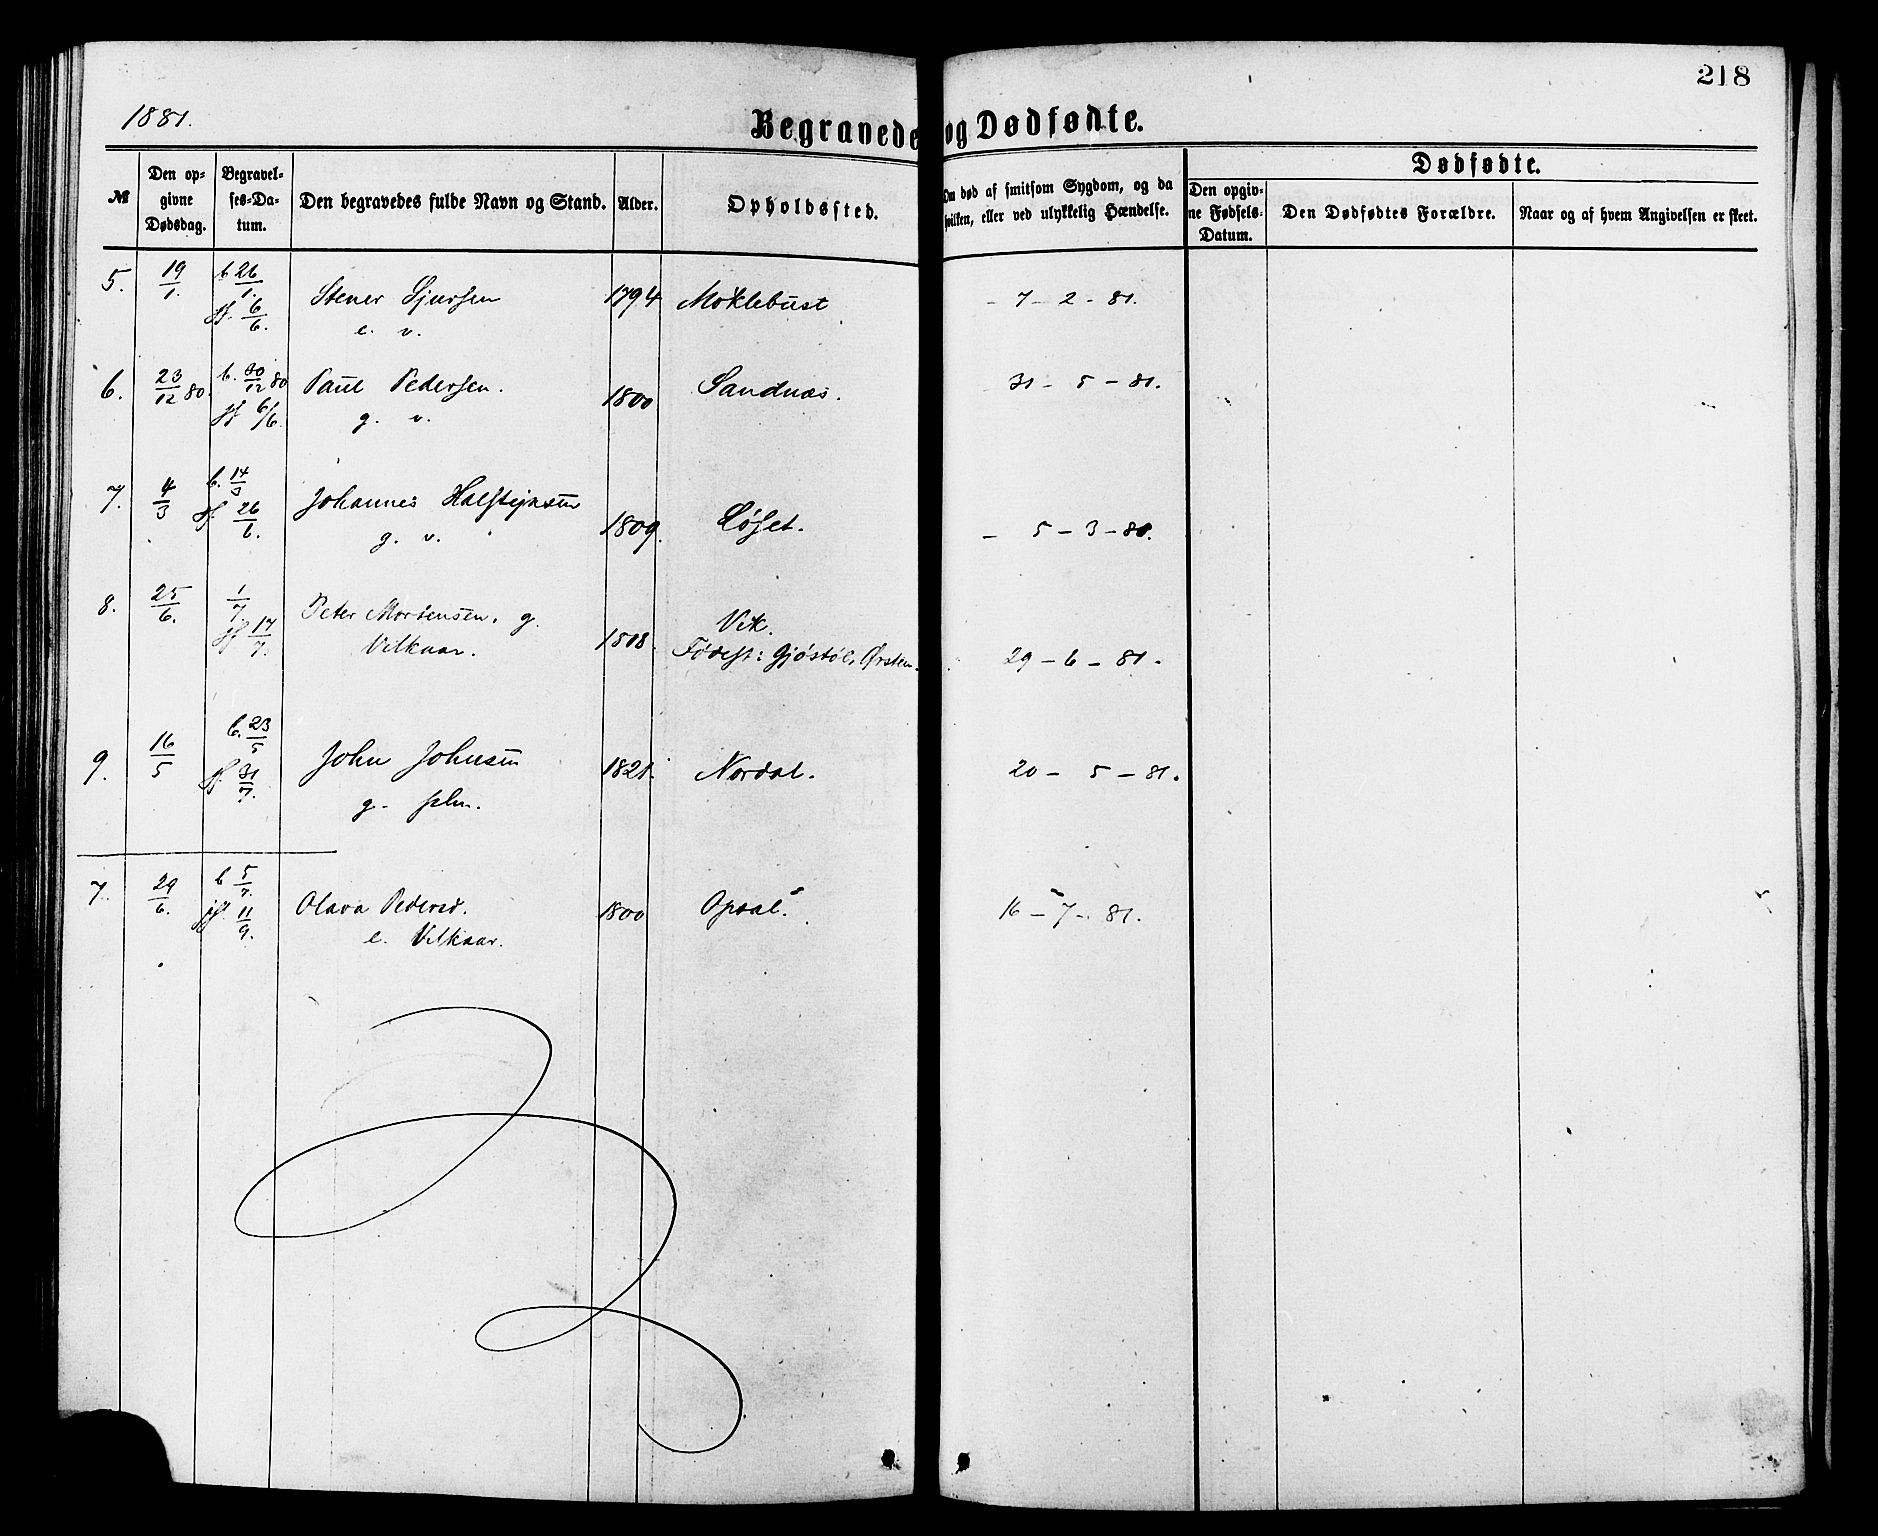 218
1881.
Begravede og Dødfødte.
Dødfødte.
№
Den opgivne Dødsdag.
Begravelses-Datum.
Den begravedes fulde Navn og Stand.
Alder.
Opholdssted.
Om død af smitsom Sygdom, og da
hvilken, eller ved ulykkelig Hændelse.
Den opgivne Fødsels-Datum.
Den Dødfødtes Forældre.
Naar og af hvem Angivelsen er skeet.
5. 19/1. b 26/1. jf. 6/6. Stener Sjursen 1794 Moklebust - 7 - 2 - 81.
e. v.
6. 23/12 80. b. 30/12 80 jf 6/6. Paul Pedersen. 1800 Sandnæs. 31 - 5 - 81.
g. v.
7. 4/3 b. 14/3 jf. 26/6. Johannes Halstejnsen 1809. Løset. - 5 - 3 - 81.
g. v.
8. 25/6. 1/7. jf 17/7. Peter Mortensen. g. 1808. Vik.
Vilkaar. Fødest: Gjøstøl, Ørsten. 29 - 6 - 81.
9. 16/5 b. 23/5 jf. 31/7. John Johnsen 1821. Nordal. 20 - 5 - 81.
g.
7. 29/6. b 5/7. jf. 11/9. Olava Pedersd. 1800 Opsal. 16 - 7 - 81.
e. Vilkaar.